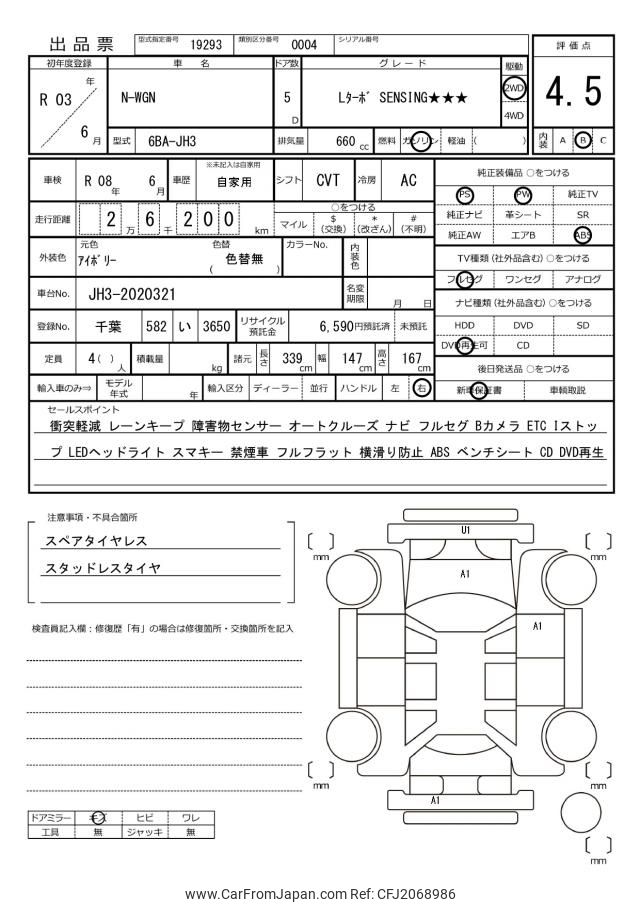 出品票 型式指定番号 19293 類別区分番号 0004 シリアル番号
評価点
4.5
内装 A B C
初年度登録 車名 ドア数 グレード 駆動
R 03 年 6 月
N-WGN 5 D Lターボ SENSING★★★ 2WD
4WD
型式 6BA-JH3 排気量 660 cc 燃料 ガソリン 軽油 ( )
車検 R 08 年 6 月 車歴 ※未記入は自家用 自家用 シフト CVT 冷房 AC
走行距離 2 万 6 千 2 0 0 km
○をつける
マイル $ (交換) * (改ざん) # (不明)
外装色 元色 アイボリー 色替 ( 色替無 ) カラーNo. 内装色
車台No. JH3-2020321 名変期限 月 日
登録No. 千葉 582 い 3650 リサイクル預託金 6,590円預託済 未預託
定員 4( ) 人 積載量 kg 諸元 長さ 339 cm 幅 147 cm 高さ 167 cm
輸入車のみ⇒ モデル年式 年 輸入区分 ディーラー 並行 ハンドル 左 右
純正装備品 ○をつける
PS PW 純正TV
純正ナビ 革シート SR
純正AW エアB ABS
TV種類(社外品含む) ○をつける
フルセグ ワンセグ アナログ
ナビ種類(社外品含む) ○をつける
HDD DVD SD
DVD再生可 CD
後日発送品 ○をつける
新車保証書 車輌取説
セールスポイント
衝突軽減 レーンキープ 障害物センサー オートクルーズ ナビ フルセグ Bカメラ ETC Iストッ
プ LEDヘッドライト スマキー 禁煙車 フルフラット 横滑り防止 ABS ベンチシート CD DVD再生
注意事項・不具合箇所
スペアタイヤレス
スタッドレスタイヤ
検査員記入欄：修復歴「有」の場合は修復箇所・交換箇所を記入
U1
A1
A1
A1
mm
mm
mm
mm
mm
ドアミラー キズ ヒビ ワレ
工具 無 ジャッキ 無
www.CarFromJapan.com Ref: CFJ2068986